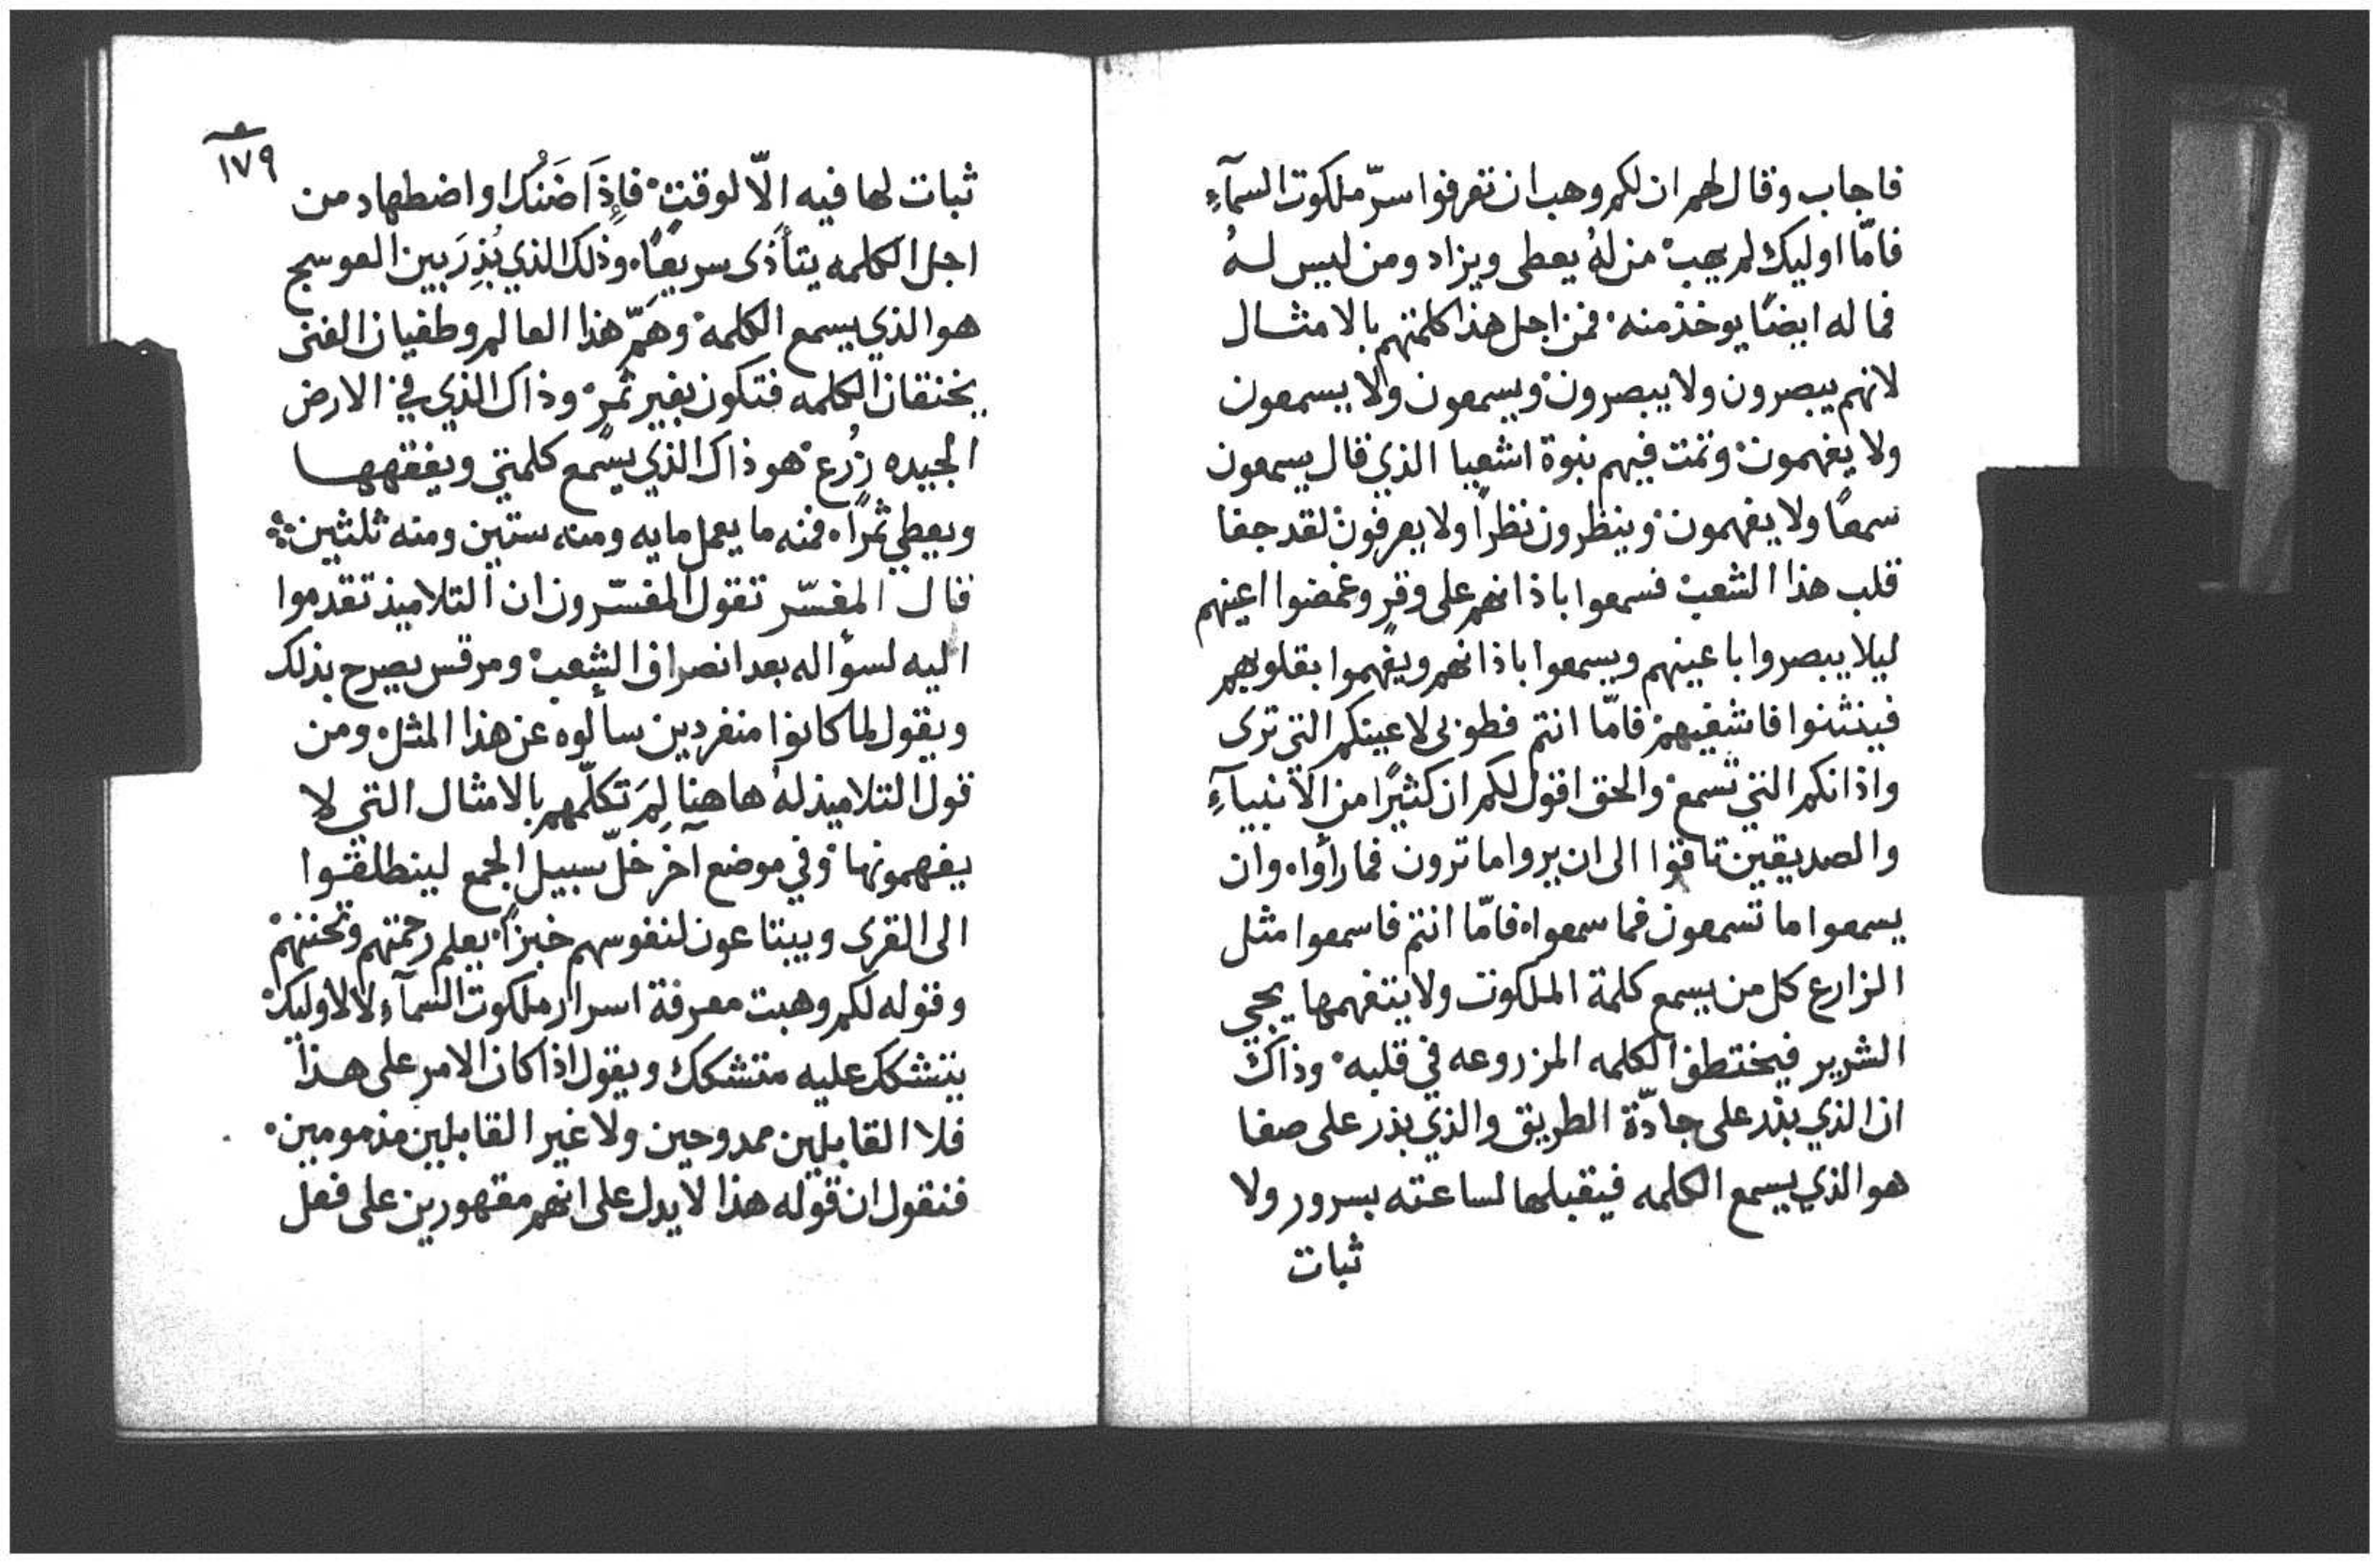 فاجاب وقال لهم ان لكم وهب ان تعرفوا سرّ ملكوت السمآءِ
فامّا اوليك لم يهب من لهُ يعطى ويزاد ومن ليس لهُ
فما له ايضًا يوخذ منه فمن اجل هذا كلمتهم بالامثال
لانهم يبصرون ولا يبصرون ويسمعون ولا يسمعون
ولا يفهمون وتمت فيهم نبوة اشعيا الذي قال يسمعون
سمعًا ولا يفهمون وينظرون نظرًا ولا يعرفون لقد جفا
قلب هذا الشعب فسمعوا باذانهم على وقرٍ وغمضوا اعينهم
ليلا يبصروا باعينهم ويسمعوا باذانهم ويفهموا بقلوبهم
فينثنوا فاشفيهم فامّا انتم فطوبى لاعينكم التي ترى
واذانكم التي تسمع والحق اقول لكم ان كثيرًا من الأنبيآءِ
والصديقين تاقوا الى ان يروا ما ترون فما رأواه وان
يسمعوا ما تسمعون فما سمعواه فامّا انتم فاسمعوا مثل
الزارع كل من يسمع كلمة الملكوت ولا يتفهمها يجي
الشرير فيختطف الكلمه المزروعه في قلبه وذاك
ان الذي بذر على جادّة الطريق والذي بذر على صفا
هو الذي يسمع الكلمه فيقبلها لساعته بسرور ولا
ثبات
١٧٩
ثبات لها فيه الّا لوقتٍ فإِذَا ضَنُكَ او اضطهاد من
اجل الكلمه يتأذى سريعًا وذلك الذي بُذِرَ بين العوسج
هو الذي يسمع الكلمة وهَمّ هذا العالم وطغيان الغنى
يخنقان الكلمه فتكون بغير ثمرٍ وذاك الذي في الارض
الجيده زُرع هو ذاك الذي يسمع كلمتي ويفقهها
ويعطي ثمرًا فمنه ما يعمل مايه ومنه ستين ومنه ثلثين
قال المفسّر تقول المفسّرون ان التلاميذ تقدموا
اليه لسؤاله بعد انصراف الشعب ومرقس يصرح بذلك
ويقول لما كانوا منفردين سألوه عن هذا المثل ومن
قول التلاميذ لهُ هاهنا لِمَ تكلّمهم بالامثال التي لا
يفهمونها وفي موضع آخر خلّ سبيل الجمع لينطلقوا
الى القرى ويبتاعون لنفوسهم خبزًا يعلم رحمتهم وتحننهم
وقوله لكم وهبت معرفة اسرار ملكوت السمآءِ لا لأوليك
يتشكك عليه متشكك ويقول اذا كان الامر على هذا
فلا القابلين ممدوحين ولا غير القابلين مذمومين
فنقول ان قوله هذا لا يدل على انهم مقهورين على فعل